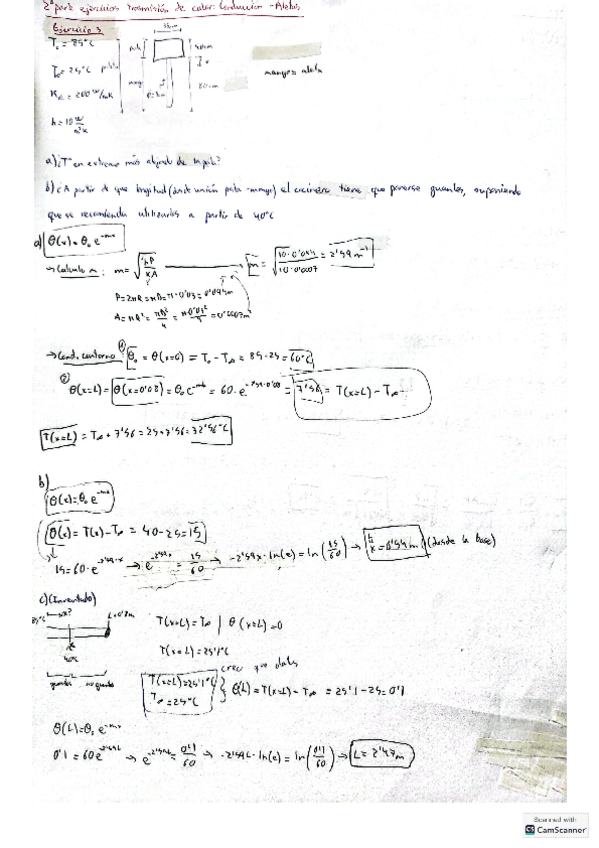 2ª parte ejercicios transmisión de calor: Conducción - Aletas
Ejercicio 3
T₀ = 85ºC
T∞ = 25ºC
h = 10 W/m²K
mango = aleta
a) ¿Tª en extremo más alejado de la pala?
b) ¿A partir de que longitud (desde unión pala-mango) el cocinero tiene que ponerse guantes, suponiendo
que se recomienda utilizarlos a partir de 40ºC
a) θ(x) = θ₀ e^-mx
→ Calculo m: m = √(hP/KA) → m = √(10·0'094/10·0'0007) = 2'59 m⁻¹
P = 2πR = πD = π·0'03 = 0'094m
A = πR² = πD²/4 = π·0'03²/4 = 0'0007m²
→ Cond. contorno ① θ₀ = θ(x=0) = T₀ - T∞ = 85 - 25 = 60ºC
② θ(x=L) = θ(x=0'08) = θ₀ e^-mL = 60·e^-2'59·0'08 = 7'56 = T(x=L) - T∞
T(x=L) = T∞ + 7'56 = 25 + 7'56 = 32'56ºC
b)
θ(x) = θ₀ e^-mx
θ(x) = T(x) - T∞ = 40 - 25 = 15
15 = 60·e^-2'59·x → e^-2'59x = 15/60 → -2'59x·ln(e) = ln(15/60) → x = 0'54m (desde la base)
c) (Inventado)
85ºC
40ºC
T(x=L) = T∞ | θ(x=L) = 0
T(x=L) = 25'1ºC
creo que datos
T(x=L) = 25'1ºC
T∞ = 25ºC
} θ(L) = T(x=L) - T∞ = 25'1 - 25 = 0'1
θ(L) = θ₀ e^-mx
0'1 = 60 e^-2'59L → e^-2'59L = 0'1/60 → -2'59L·ln(e) = ln(0'1/60) → L = 2'47m
Scanned with
CS CamScanner